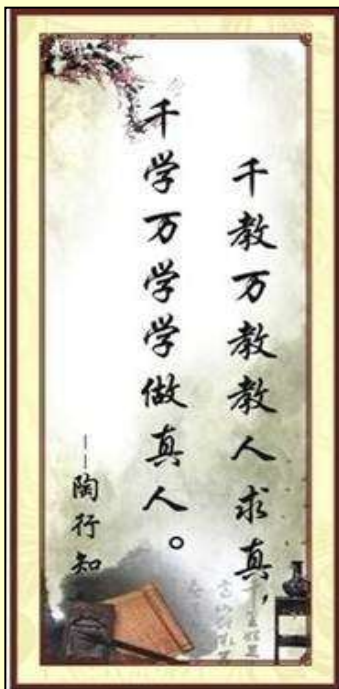 千教万教教人求真，
千学万学学做真人。
——陶行知